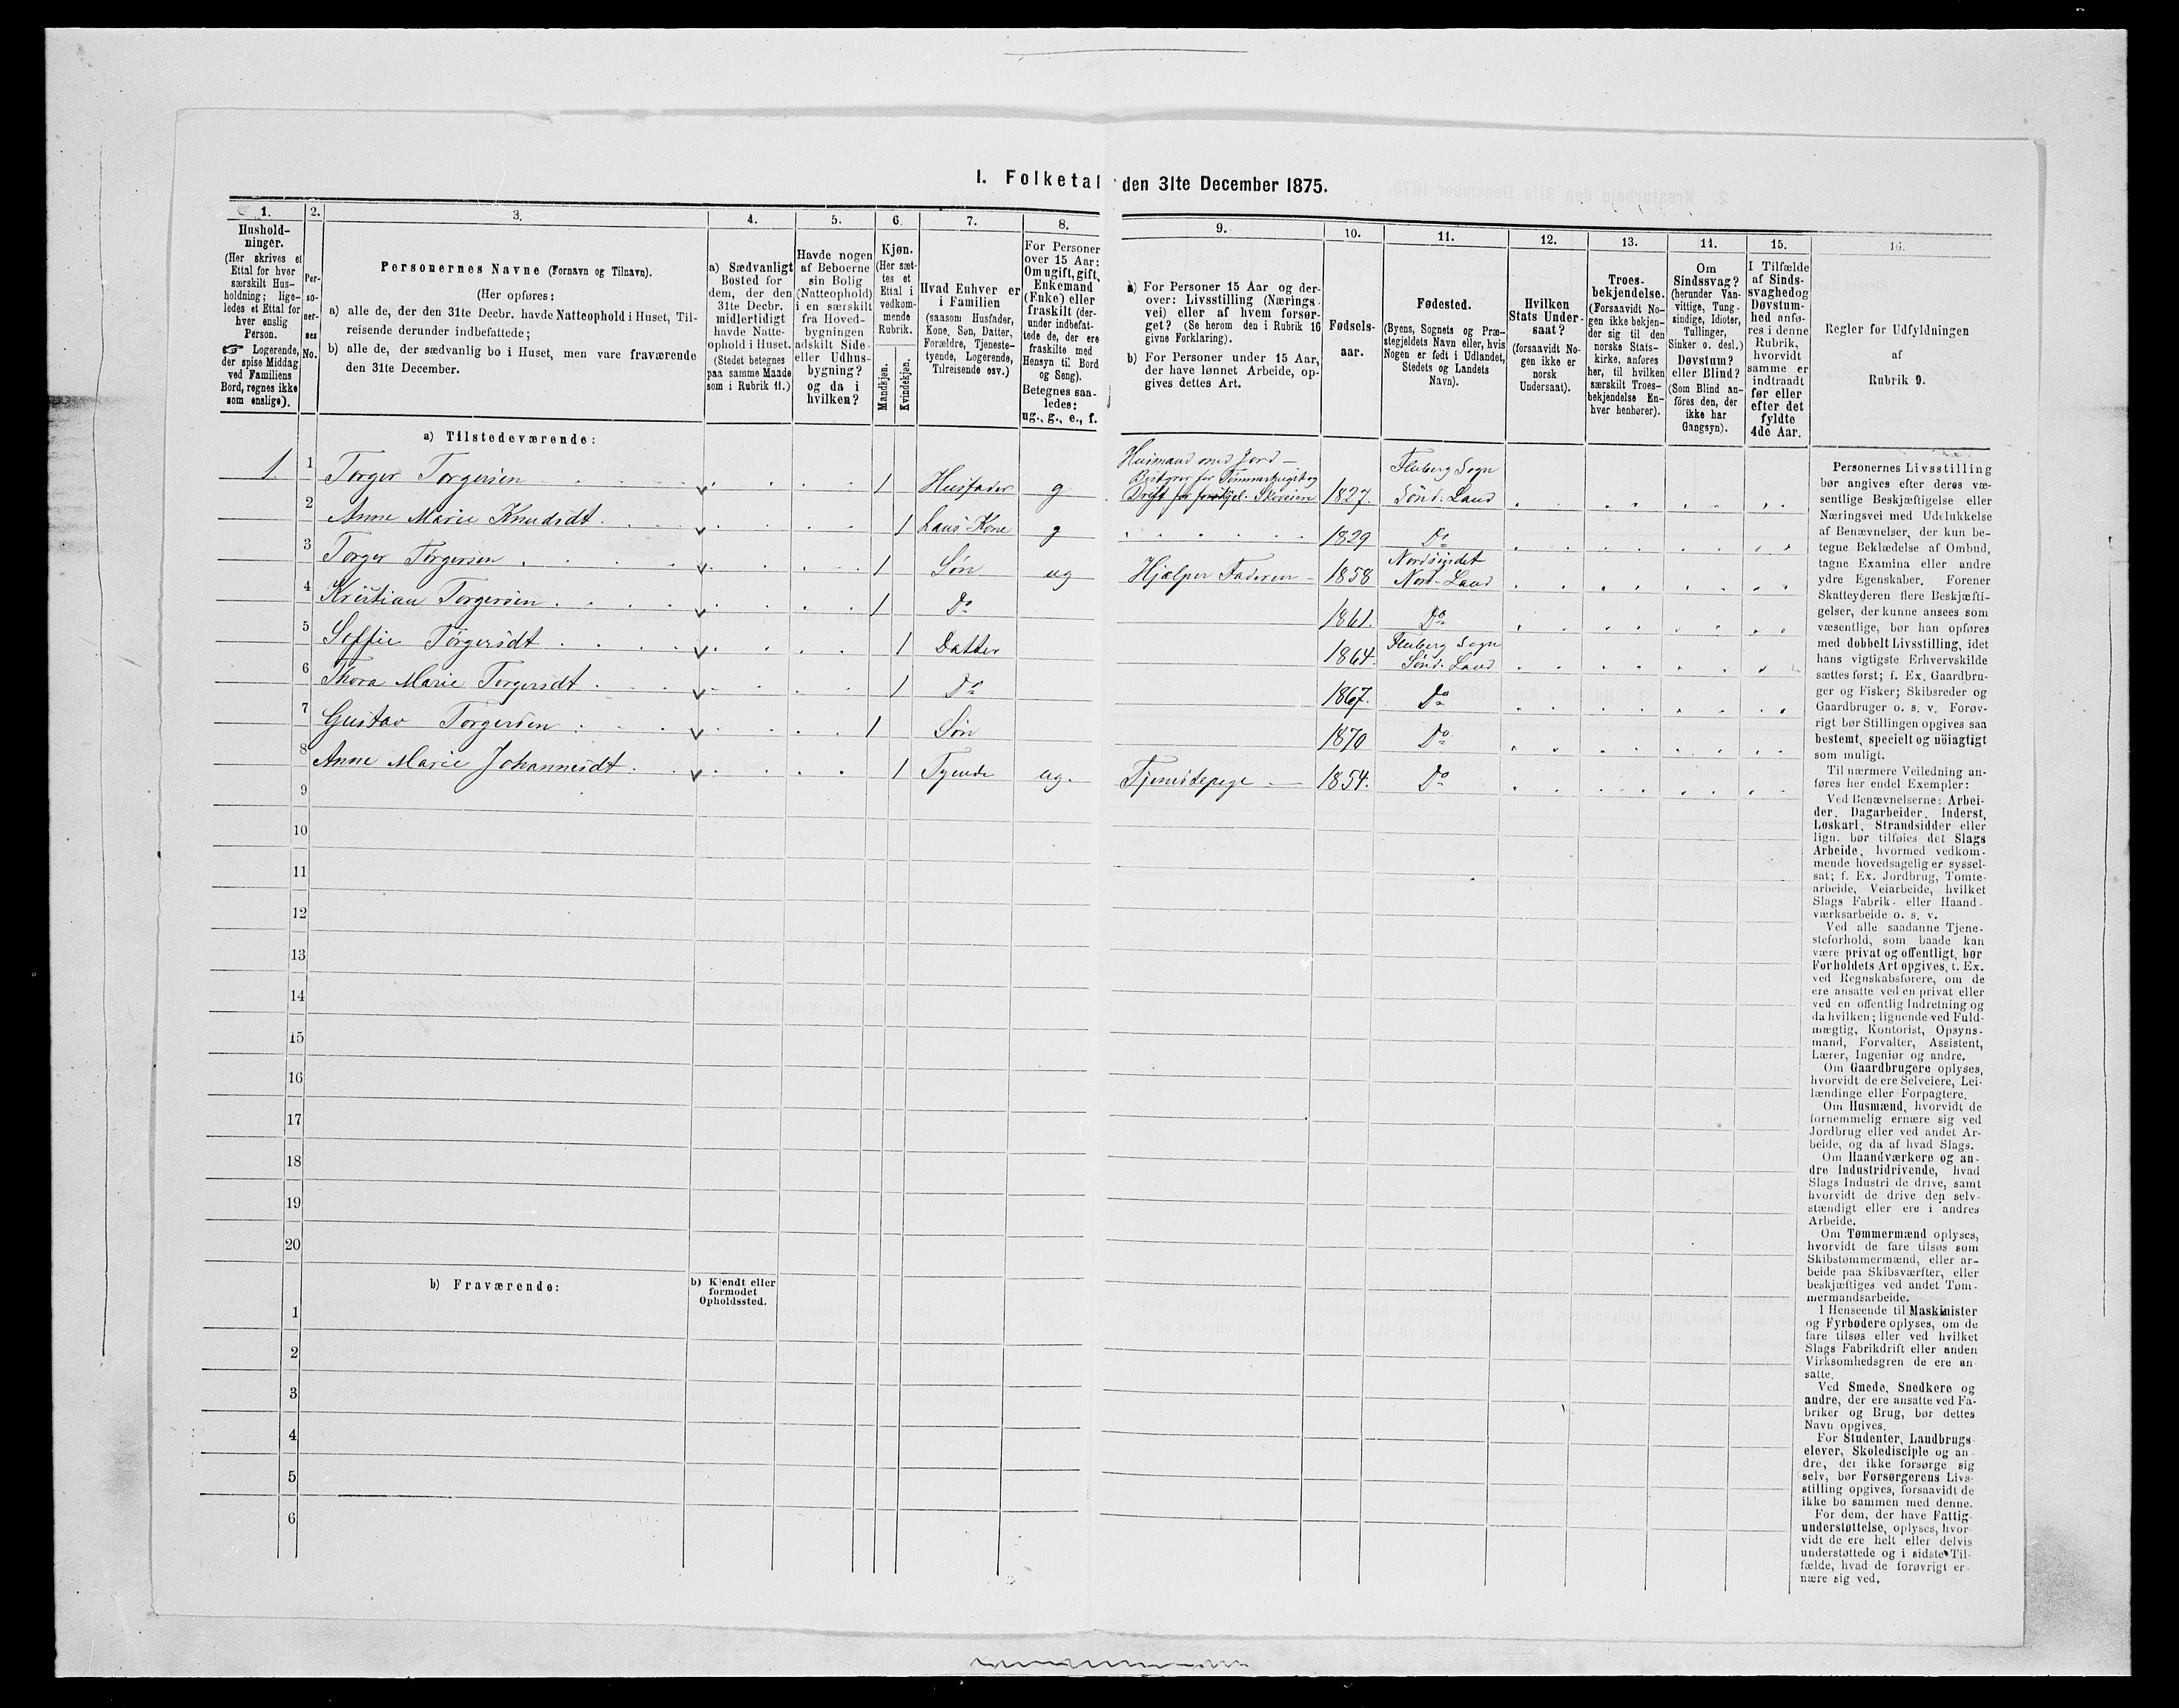 1. Folketal den 31te December 1875.
1.
Hushold-
ninger.
(Her skrives et
Ettal for hver
særskilt Hus-
holdning; lige-
ledes et Ettal for
hver enslig
Person.
☞ Logerende,
der spise Middag
ved Familiens
Bord, regnes ikke
som enslige).
2.
Per-
so-
ner-
nes
No.
3.
Personernes Navne (Fornavn og Tilnavn).
(Her opføres:
a) alle de, der den 31te Decbr. havde Natteophold i Huset, Til-
reisende derunder indbefattede;
b) alle de, der sædvanlig bo i Huset, men vare fraværende
den 31te December.
4.
a) Sædvanligt
Bosted for
dem, der den
31te Decbr.
midlertidigt
havde Natte-
ophold i Huset.
(Stedet betegnes
paa samme Maade
som i Rubrik 11.)
5.
Havde nogen
af Beboerne
sin Bolig
(Natteophold)
i en særskilt
fra Hoved-
bygningen
adskilt Side-
eller Udhus-
bygning?
og da i
hvilken?
6.
Kjøn.
(Her sæt-
tes et
Ettal i
vedkom-
mende
Rubrik.
Mandkjøn.
Kvindekjøn.
7.
Hvad Enhver er
i Familien
(saasom Husfader,
Kone, Søn, Datter,
Forældre, Tjeneste-
tyende, Logerende,
Tilreisende osv.)
8.
For Personer
over 15 Aar:
Om ugift, gift,
Enkemand
(Enke) eller
fraskilt (der-
under indbefat-
tede de, der ere
fraskilte med
Hensyn til Bord
og Seng).
Betegnes saa-
ledes:
ug., g., e., f.
9.
a) For Personer 15 Aar og der-
over: Livsstilling (Nærings-
vei) eller af hvem forsør-
get? (Se herom den i Rubrik 16
givne Forklaring).
b) For Personer under 15 Aar,
der have lønnet Arbeide, op-
gives dettes Art.
10.
Fødsels-
aar.
11.
Fødested.
(Byens, Sognets og Præ-
stegjeldets Navn eller, hvis
Nogen er født i Udlandet,
Stedets og Landets
Navn).
12.
Hvilken
Stats Under-
saat?
(forsaavidt No-
gen ikke er
norsk
Undersaat).
13.
Troes-
bekjendelse.
(Forsaavidt No-
gen ikke bekjen-
der sig til den
norske Stats-
kirke, anføres
her, til hvilken
særskilt Troes-
bekjendelse En-
hver henhører).
14.
Om
Sindssvag?
(herunder Van-
vittige, Tung-
sindige, Idioter,
Tullinger,
Sinker o. desl.)
Døvstum?
eller Blind?
(Som Blind an-
føres den, der
ikke har
Gangsyn).
15.
I Tilfælde
af Sinds-
svaghed og
Døvstum-
hed anfø-
res i denne
Rubrik,
hvorvidt
samme er
indtraadt
før eller
efter det
fyldte
4de Aar.
16.
Regler for Udfyldningen
af
Rubrik 9.
a) Tilstedeværende:
1. 1 Torger Torgersen v 1 Husfader g Husmand med Jord – Bestyrer for Tømmerhugst og Drift Skoveiere 1827. Fluberg Sogn Sønd. Land
2 Anne Marie Knudsdt. v 1 Hans Kone g 1829 Do
3 Torger Torgersen v 1 Søn ug Hjælper Faderen – 1858 Nordsindet Nord-Land
4 Kristian Torgersen v 1 Do 1861. Do
5 Soffie Torgersdt v 1 Datter 1864. Fluberg Sogn Sønd. Land
6 Thora Marie Torgersdt v 1 Do 1867. Do
7 Gustav Torgersen v 1 Søn 1870 Do
8 Anne Marie Johannesdt. v 1 Tyende ug. Tjenestepige – 1854. Do
9
10
11
12
13
14
15
16
17
18
19
20
b) Fraværende:
b) Kjendt eller
formodet
Opholdssted.
1
2
3
4
5
6
Personernes Livsstilling
bør angives efter deres væ-
sentlige Beskjæftigelse eller
Næringsvei med Udelukkelse
af Benævnelser, der kun be-
tegne Beklædelse af Ombud,
tagne Examina eller andre
ydre Egenskaber. Forener
Skatteyderen flere Beskjæfti-
gelser, der kunne ansees som
væsentlige, bør han opføres
med dobbelt Livsstilling, idet
hans vigtigste Erhvervskilde
sættes først; f. Ex. Gaardbru-
ger og Fisker; Skibsreder og
Gaardbruger o. s. v. Forøv-
rigt bør Stillingen opgives saa
bestemt, specielt og nöiagtigt
som muligt.
Til nærmere Veiledning an-
føres her endel Exempler:
Ved Benævnelserne: Arbei-
der, Dagarbeider, Inderst,
Løskarl, Strandsidder eller
lign. bør tilføies det Slags
Arbeide, hvormed vedkom-
mende hovedsagelig er syssel-
sat; f. Ex. Jordbrug, Tomte-
arbeide, Veiarbeide, hvilket
Slags Fabrik- eller Haand-
værksarbeide o. s. v.
Ved alle saadanne Tjene-
steforhold, som baade kan
være privat og offentligt, bør
Forholdets Art opgives, t. Ex.
ved Regnskabsførere, om de
ere ansatte ved en privat eller
ved en offentlig Indretning og
da hvilken; lignende ved Fuld-
mægtig, Kontorist, Opsyns-
mand, Forvalter, Assistent,
Lærer, Ingeniør og andre.
Om Gaardbrugere oplyses,
hvorvidt de ere Selveiere, Lei-
lændinge eller Forpagtere.
Om Husmænd, hvorvidt de
fornemmelig ernære sig ved
Jordbrug eller ved andet Ar-
beide, og da af hvad Slags.
Om Haandværkere og an-
dre Industridrivende, hvad
Slags Industri de drive, samt
hvorvidt de drive den selv-
stændigt eller ere i andres
Arbeide.
Om Tømmermænd oplyses,
hvorvidt de fare tilsøs som
Skibstømmermænd, eller ar-
beide paa Skibsværfter, eller
beskjæftiges ved andet Tøm-
mermandsarbeide.
I Henseende til Maskinister
og Fyrbødere oplyses, om de
fare tilsøs eller ved hvilket
Slags Fabrikdrift eller anden
Virksomhedsgren de ere an-
satte.
Ved Smede, Snedkere og
andre, der ere ansatte ved Fa-
briker og Brug, bør dettes
Navn opgives.
For Studenter, Landbrugs-
elever, Skoledisciple og an-
dre, der ikke forsørge sig
selv, bør Forsørgerens Livs-
stilling opgives, forsaavidt de
ikke bo sammen med denne.
For dem, der have Fattig-
understøttelse, oplyses, hvor-
vidt de ere helt eller delvis
understøttede og i sidste Til-
fælde, hvad de forøvrigt er-
nære sig ved.